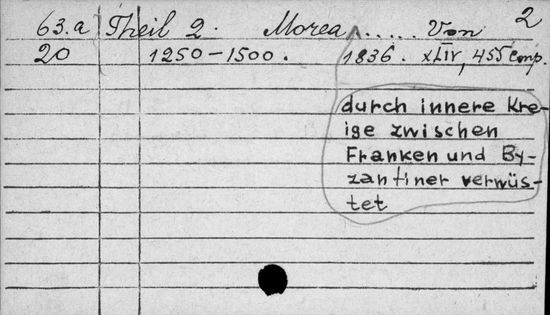 2
63.a Theil 2. Morea ..... Von
20 1250-1500. 1836. XLIV, 455 comp.
durch innere Kre-
ige zwischen
Franken und By-
zantiner verwüs-
tet